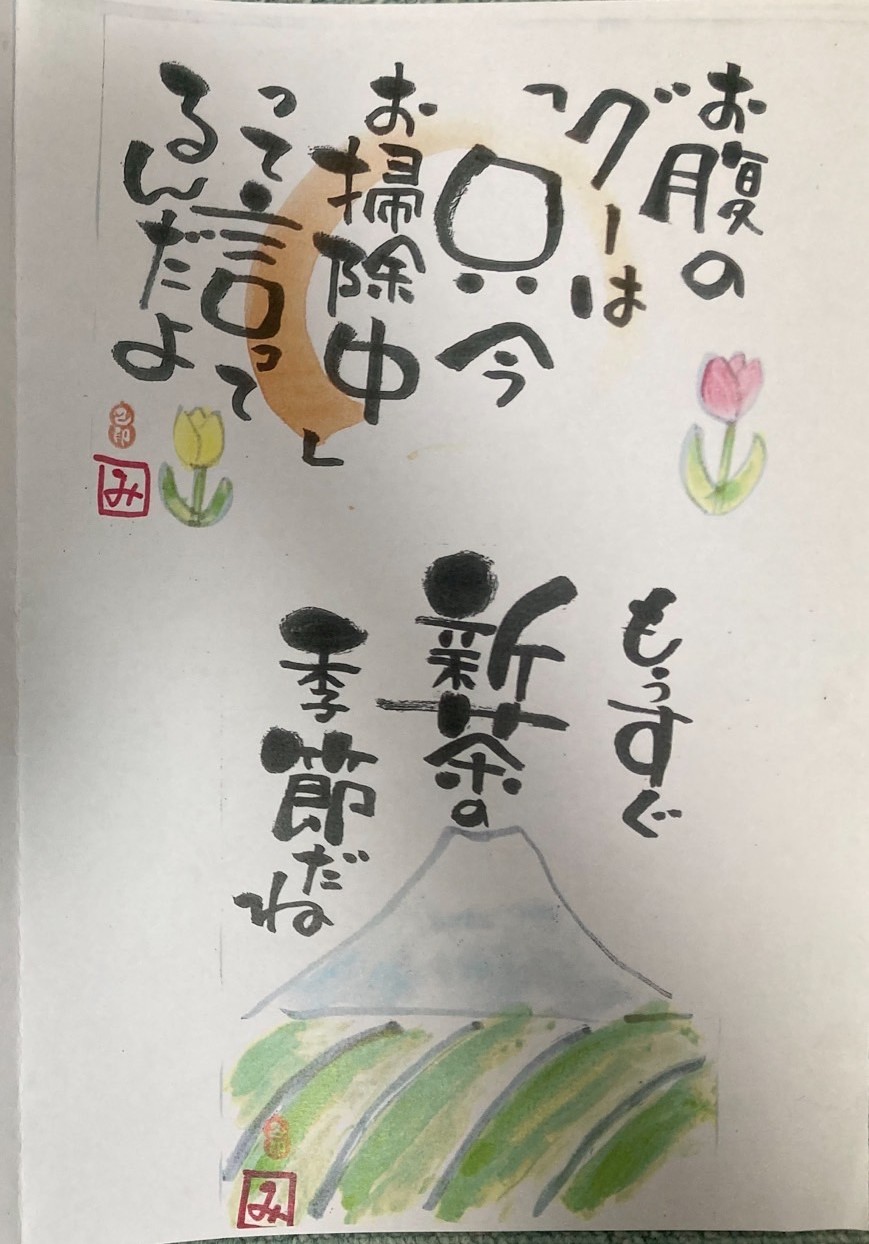 お腹の
グーは
「只今
お掃除中」
って言って
るんだよ
み
もうすぐ
新茶の
季節だね
み